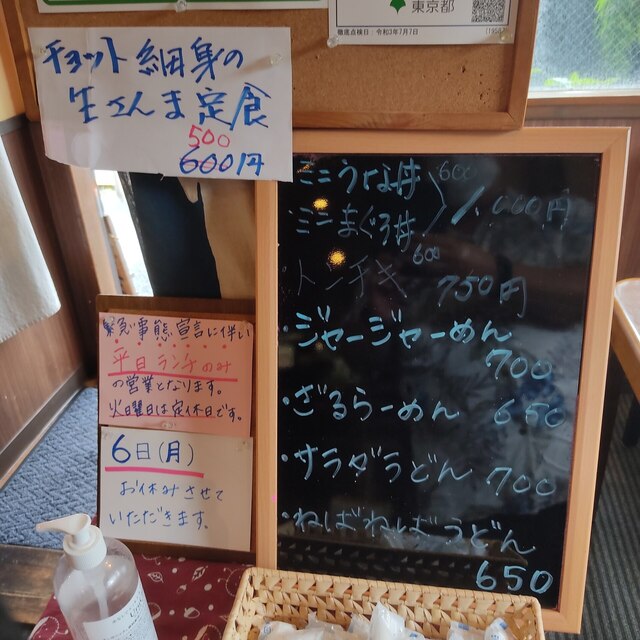 東京都
徹底点検日:令和3年7月7日
チョット細身の
生さんま定食
500
600円
ミニうな丼 600
ミニまぐろ丼 600
1,000円
トンテキ 750円
・ジャージャーめん
700
・ざるらーめん 650
・サラダうどん 700
・ねばねばうどん
650
緊急事態宣言に伴い
平日ランチのみ
の営業となります。
火日曜日は定休日です。
6日(月)
お休みさせて
いただきます。